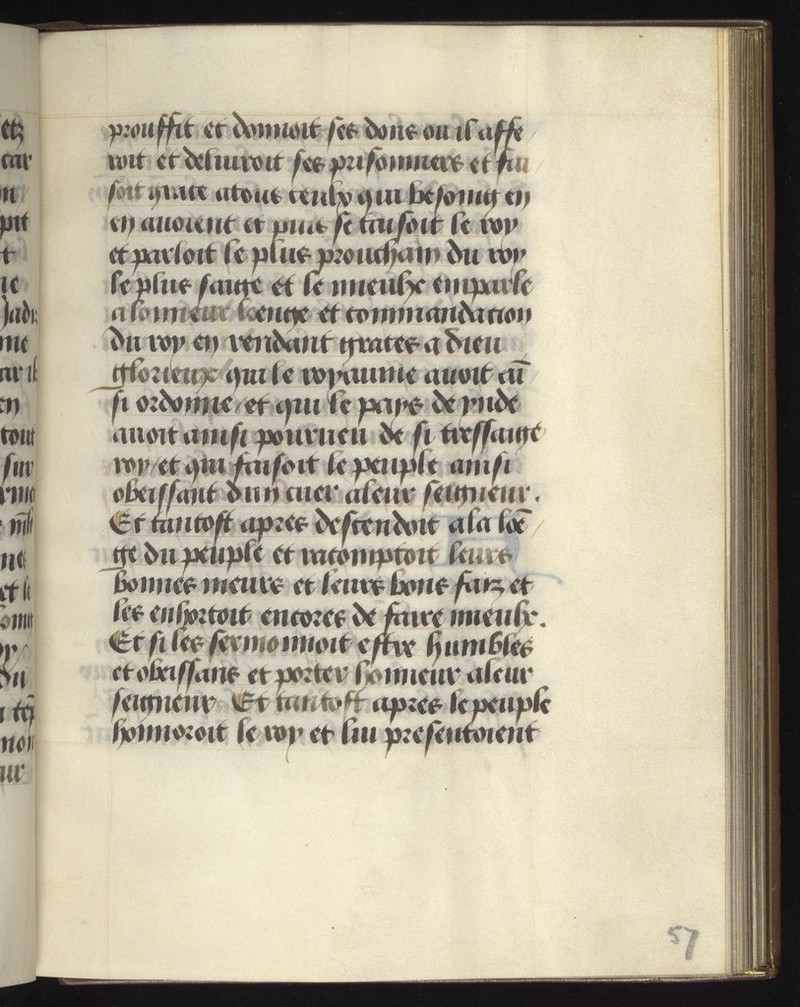 prouffit et donnoit ses dons ou il affe
roit et deliuroit ses prisonniers et fai
soit grace atous ceulx qui besoing en
en auoient et puis se taisoit le roy
et parloit le plus prouchain du roy
le plus saige et le mieulx emparle
a lonneur loenge et commandacion
du roy en rendant graces a dieu
glorieux qui le royaume auoit aīsi
si ordonne / et qui le pays de ynde
auoit ainsi pourueu de si tressaige
roy / et qui faisoit le peuple ainsi
obeissant dun cuer aleur seigneur.
Et tantost apres descendoit a la loē
ge du peuple et racomptoit leurs
bonnes meurs et leurs bons faiz et
les enhortoit encores de faire mieulx.
Et si les sermonnoit estre humbles
et obeissans et porter honneur aleur
seigneur Et tantost apres le peuple
honnoroit le roy et lui presentoient
etz
car
pit
Jadis
me
en
tout
sur
du
57